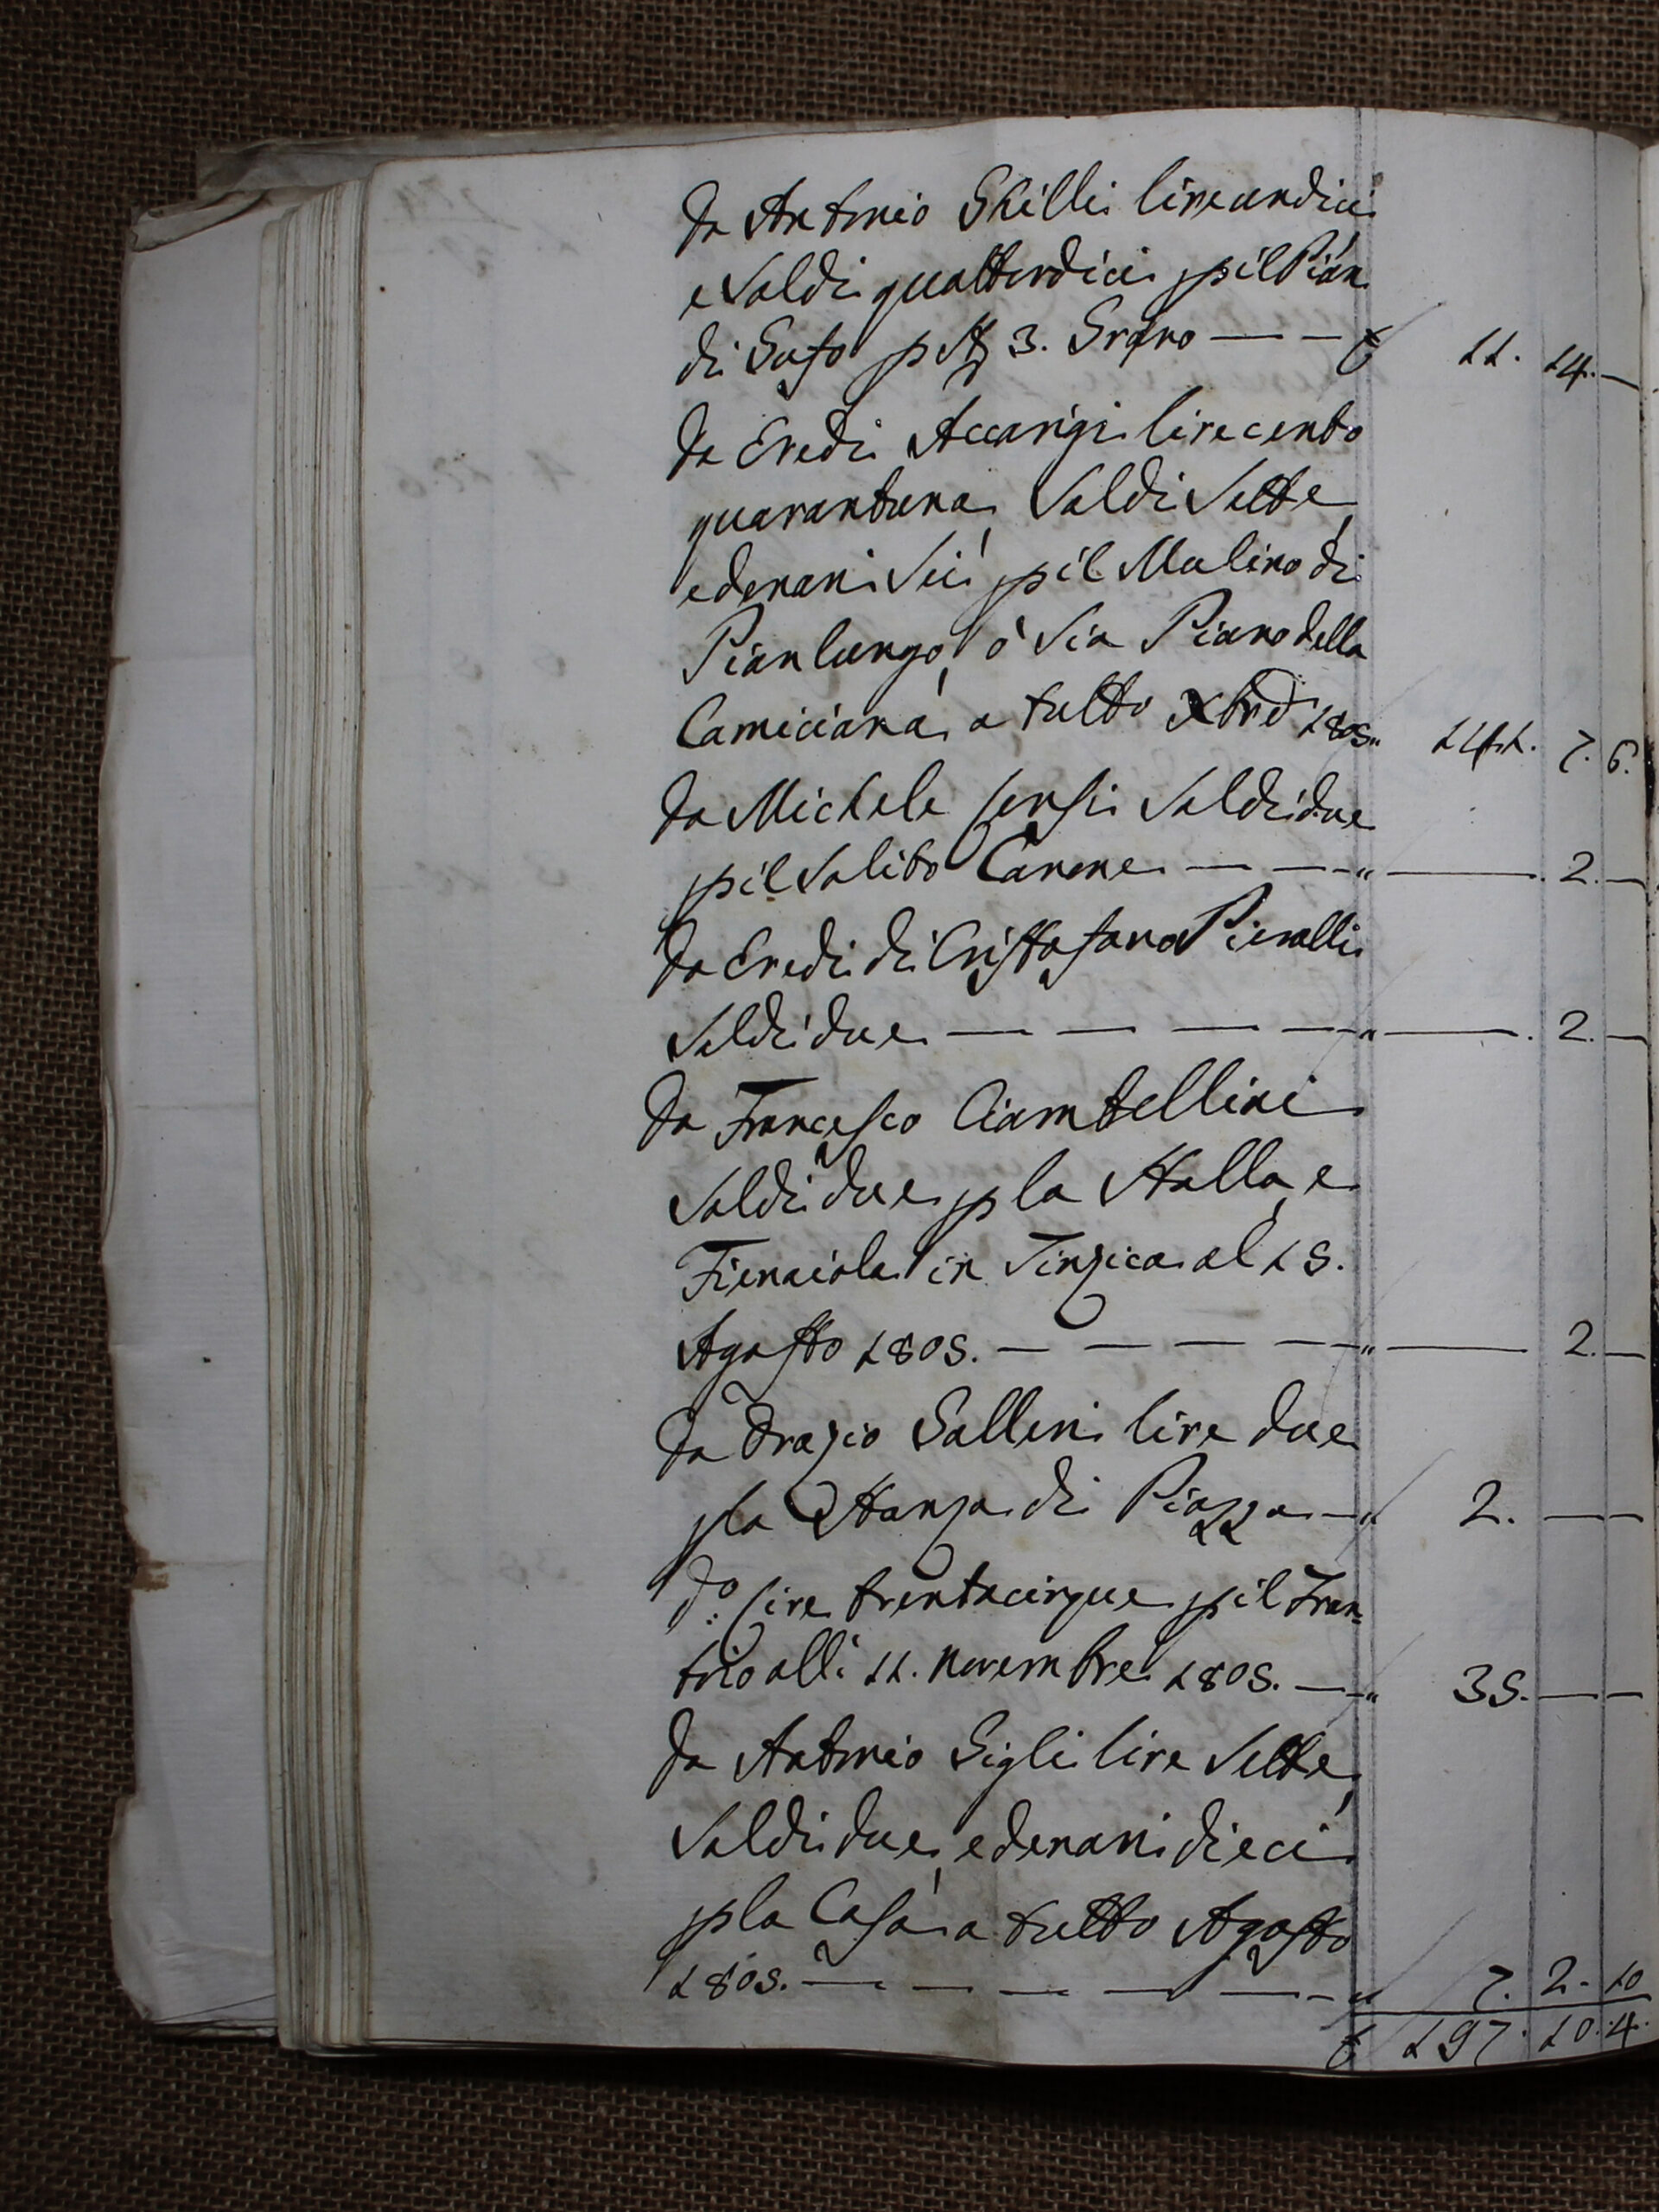 Da Antonio Ghilli lire undici
e Soldi quattordici p il Pian
di Sufo p St 3. Grano — — £ 11. 14. —
Da Eredi Accarigi lire cento
quarantuna, Soldi Sette,
e denari Sei p il Mulino di
Pian lungo, ò Sia Piano della
Camiciana, a tutto Xbre 1805. " 141. 7. 6.
Da Michele Sensi Soldi due
p il Solito Canone — — — " — 2. —
Da Eredi di Cristofano Pieralli
Soldi due — — — — " — 2. —
Da Francesco Ciambellini
Soldi due p la Stalla, e
Fienaiola in al 15.
Agosto 1805. — — — — " — 2. —
Da Orazio Galleri lire due
p la Stanza di Piazza — " 2. — —
do: lire trentacinque p il Fran=
toio alli 11. novembre 1805. — " 35. — —
Da Antonio Gigli lire Sette,
Soldi due, e denari dieci
p la Casa a tutto Agosto
1805. — — — — — — " 7. 2. 10
£ 197. 10. 4.